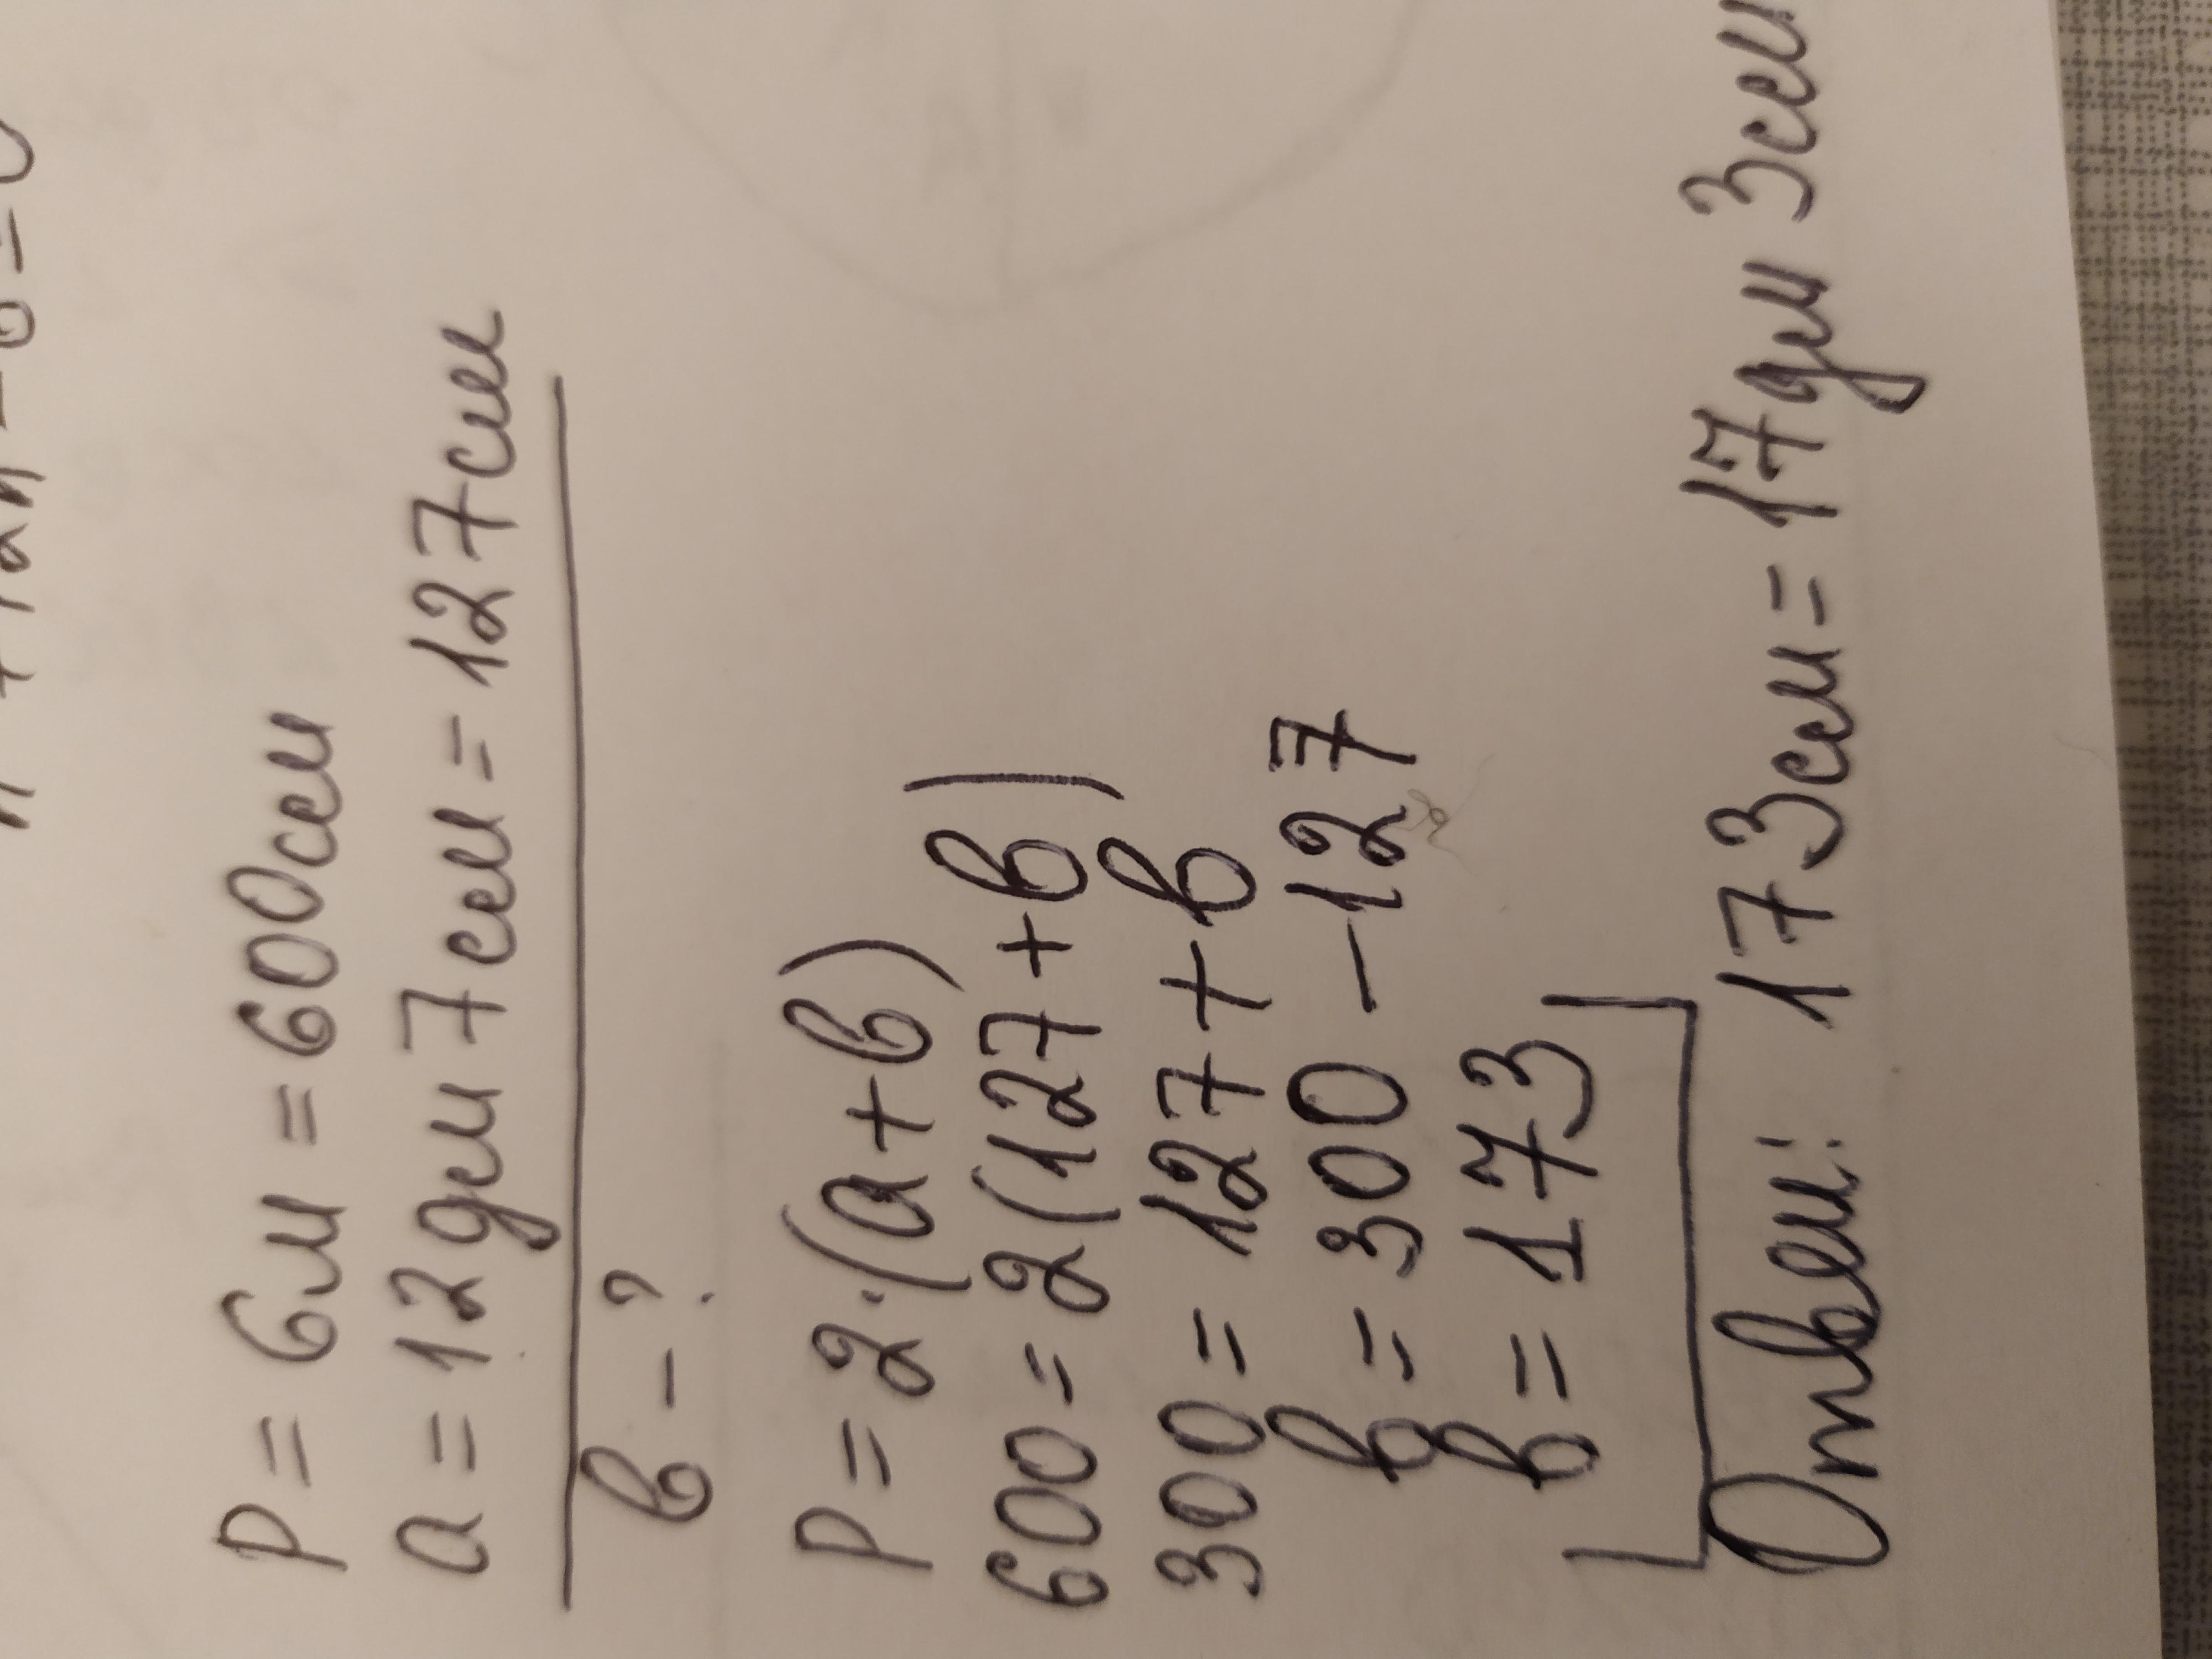 P = 6м = 600см
a = 12дм 7см = 127см
в - ?
P = 2·(a+в)
600 = 2(127+в)
300 = 127+в
в = 300 - 127
в = 173
Ответ: 173см = 17дм 3см